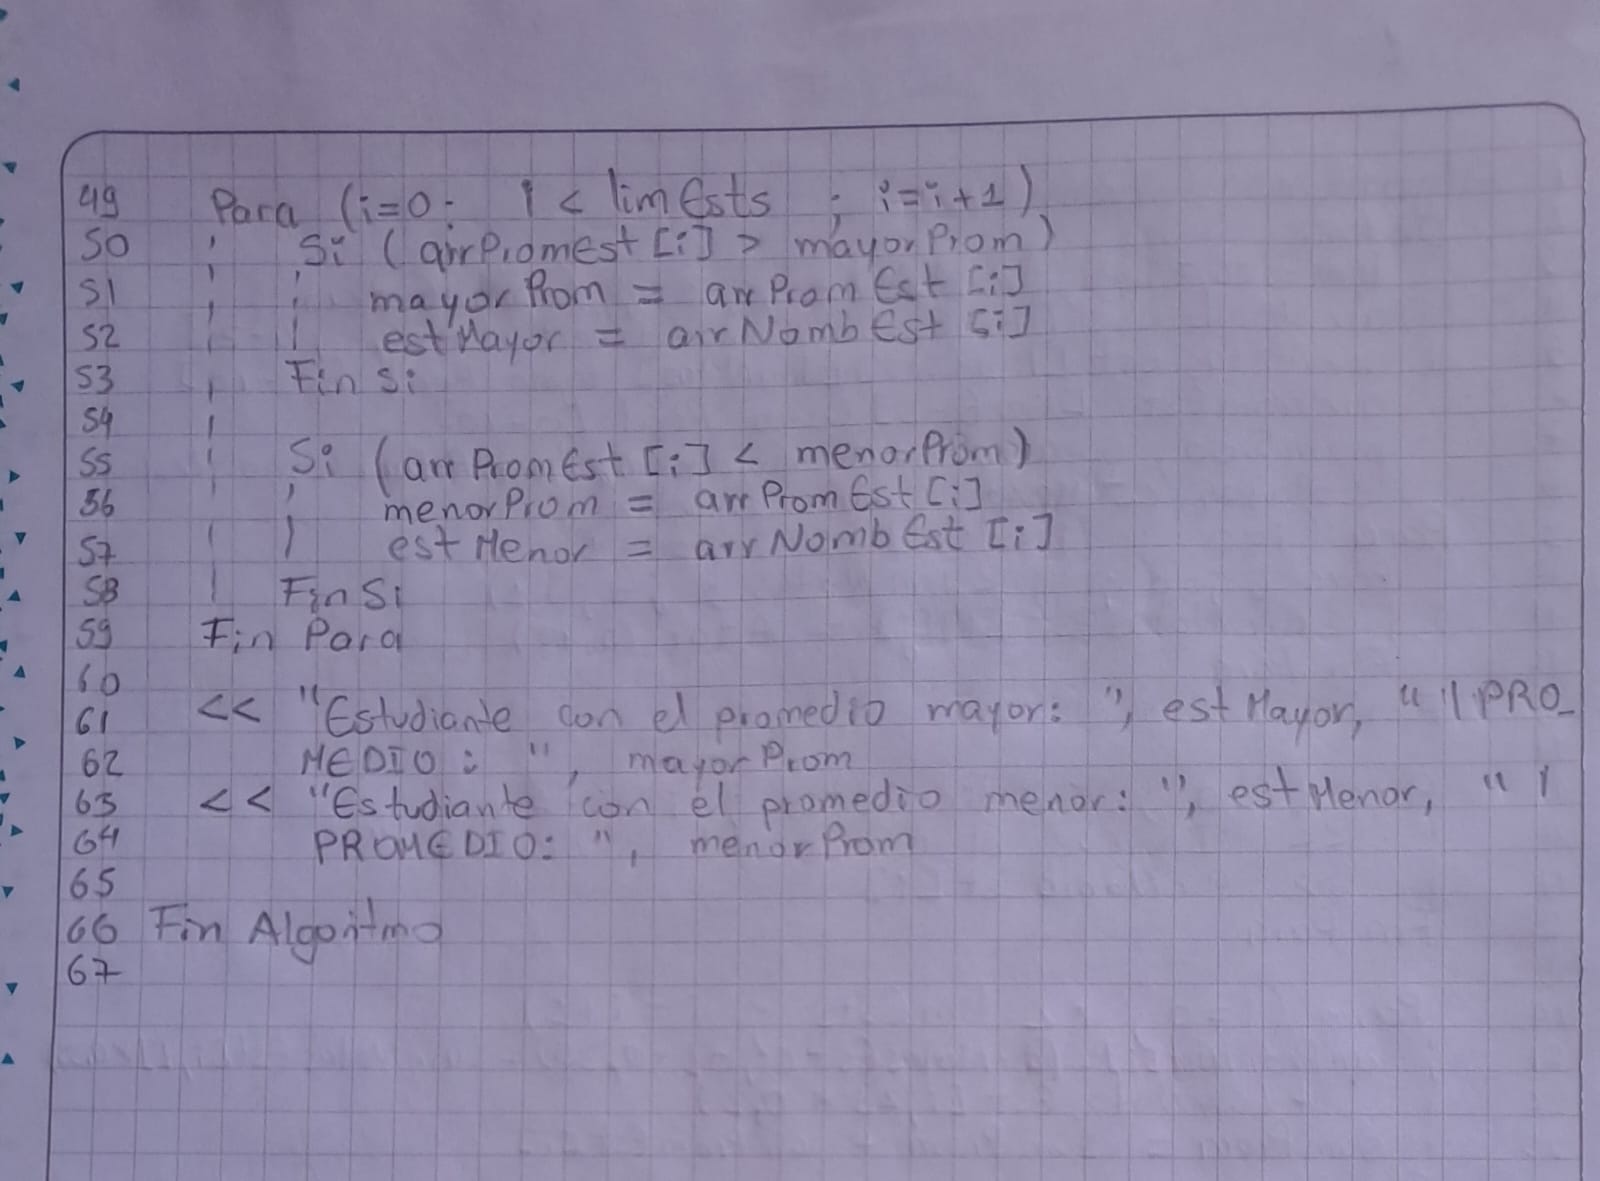 49 Para (i=0; i < limEsts ; i=i+1)
50 Si (arrPromEst [i] > mayorProm)
51 mayorProm = arrPromEst [i]
52 estMayor = arrNombEst [i]
53 Fin Si
54
55 Si (arrPromEst [i] < menorProm)
56 menorProm = arrPromEst [i]
57 estMenor = arrNombEst [i]
58 Fin Si
59 Fin Para
60
61 << "Estudiante con el promedio mayor: ", estMayor, " || PRO_
62 MEDIO : ", mayorProm
63 << "Estudiante con el promedio menor: ", estMenor, " |
64 PROMEDIO: ", menorProm
65
66 Fin Algoritmo
67